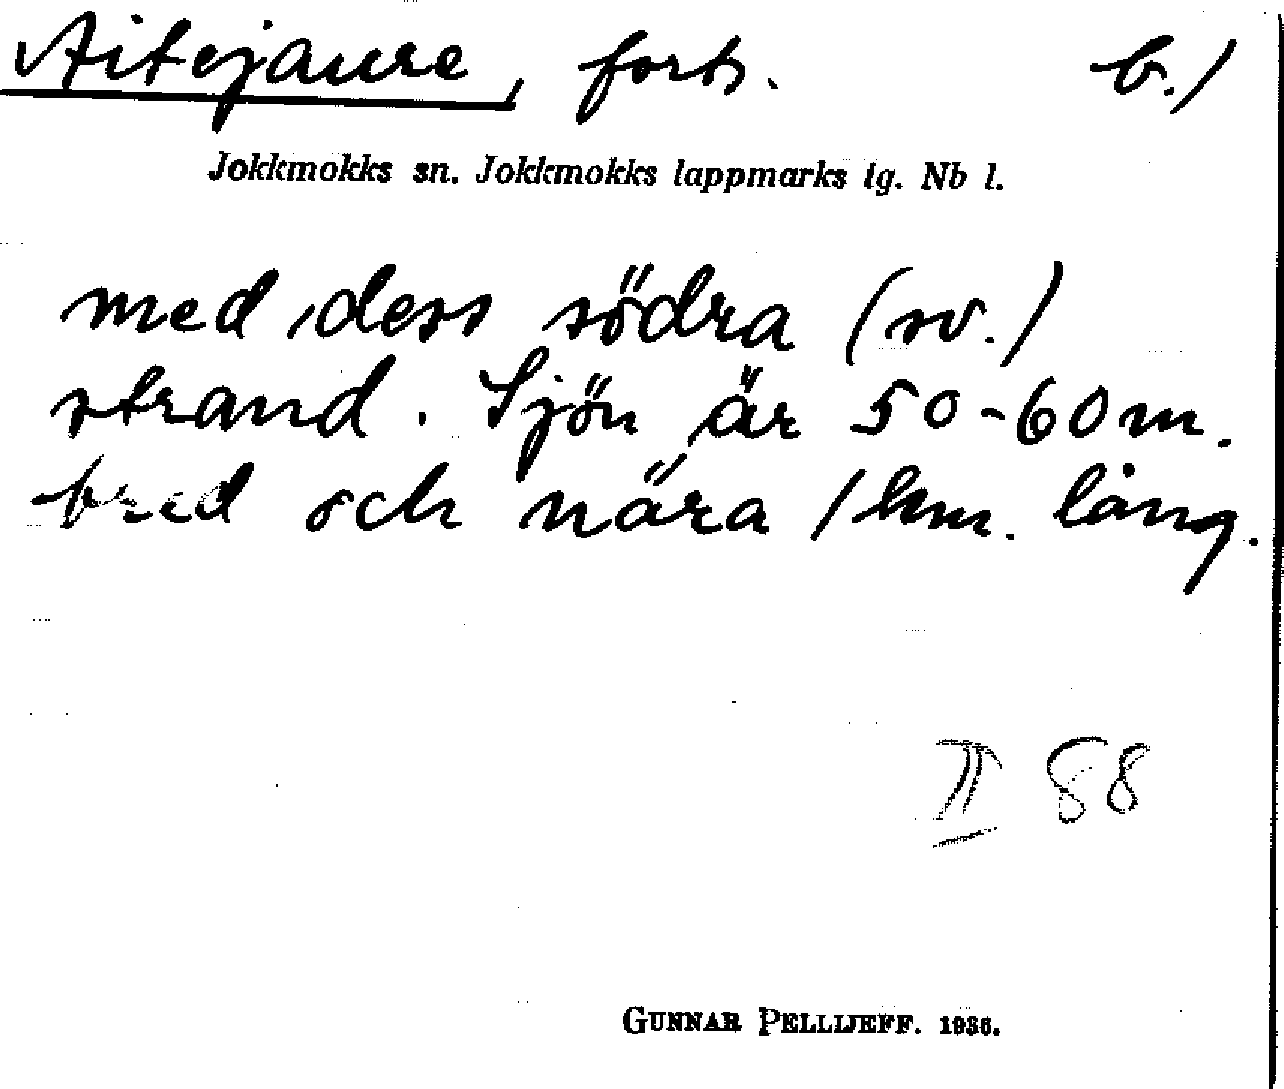 Aitejaure, forts. b./
Jokkmokks sn. Jokkmokks lappmarks tg. Nb l.
med dess södra (sv.)
strand. Sjön är 50-60 m.
bred och nära 1 km. lång.
II 88
GUNNAR PELLIJEFF. 1936.